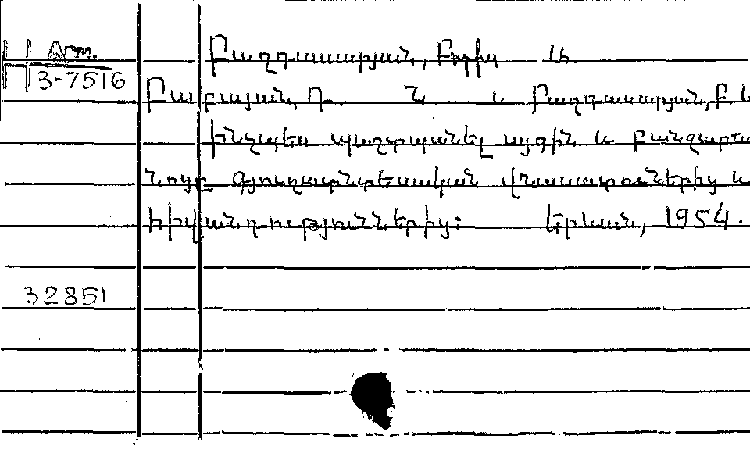 Arm.
3-7516
Բաղդասարյան, Բորիս Ա.
Բաբայան, Դ. Ն. և Բաղդասարյան, Բ. Ա
Ինչպես պաշտպանել այգին և բանջարա
նոցը գյուղատնտեսական վնասատուներից և
հիվանդություններից: Երևան, 1954.
32851